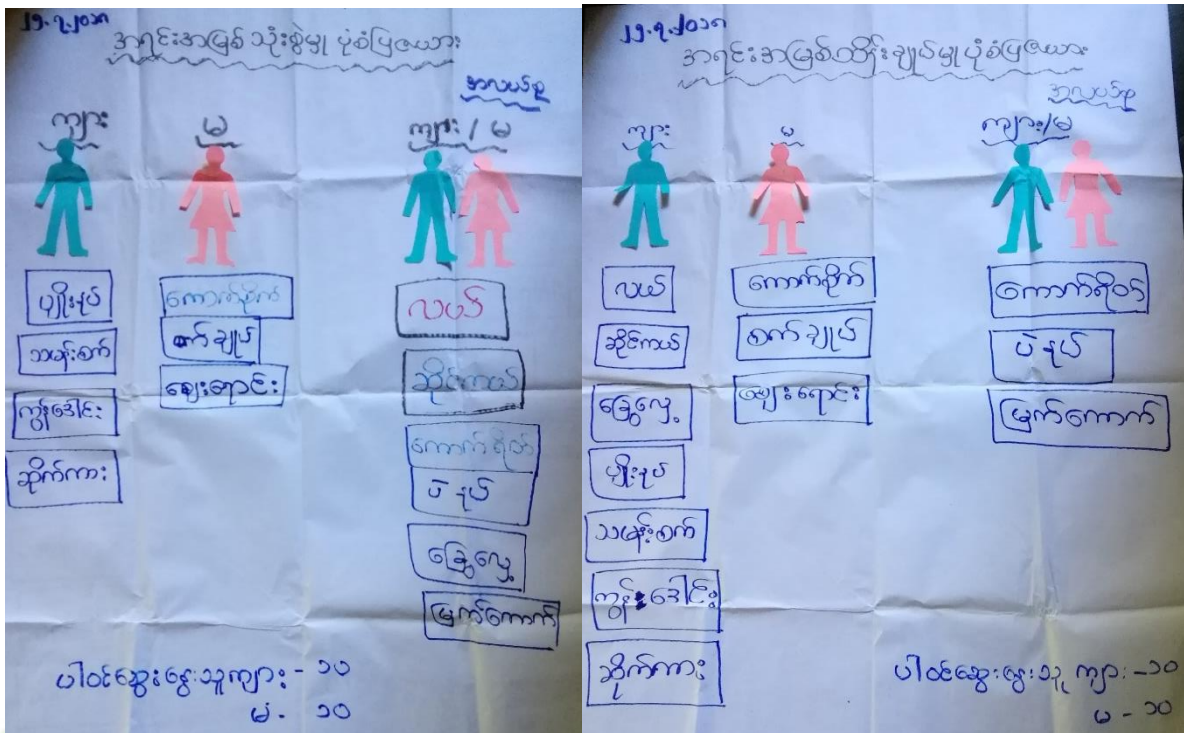 ၂၅.၇.၂၀၁၈
အရင်းအမြစ် သုံးစွဲမှု ပုံစံပြဇယား
အလယ်စု
ကျား
မ
ကျား / မ
ပျိုးနုပ်
သမန်းစက်
ကျွန်းဒေါင်း
ဆိုက်ကား
ကောက်စိုက်
စက်ချုပ်
ဈေးရောင်း
လယ်
ဆိုင်ကယ်
ကောက်ရိတ်
ပဲနုပ်
ခြွေလှေ့
မြက်ကောက်
ပါဝင်ဆွေးနွေးသူကျား - ၁၀
မ - ၁၀
အရင်းအမြစ်ထိန်းချုပ်မှုပုံစံပြဇယား
အလယ်စု
ကျား
မ
ကျား/မ
လယ်
ဆိုင်ကယ်
ခြွေလှေ့
ပျိုးနုပ်
သမန်းစက်
ကျွန်းဒေါင်း
ဆိုက်ကား
ကောက်စိုက်
စက်ချုပ်
ဈေးရောင်း
ကောက်ရိတ်
ပဲနုပ်
မြက်ကောက်
ပါဝင်ဆွေးနွေးသူ ကျား - ၁၀
မ - ၁၀